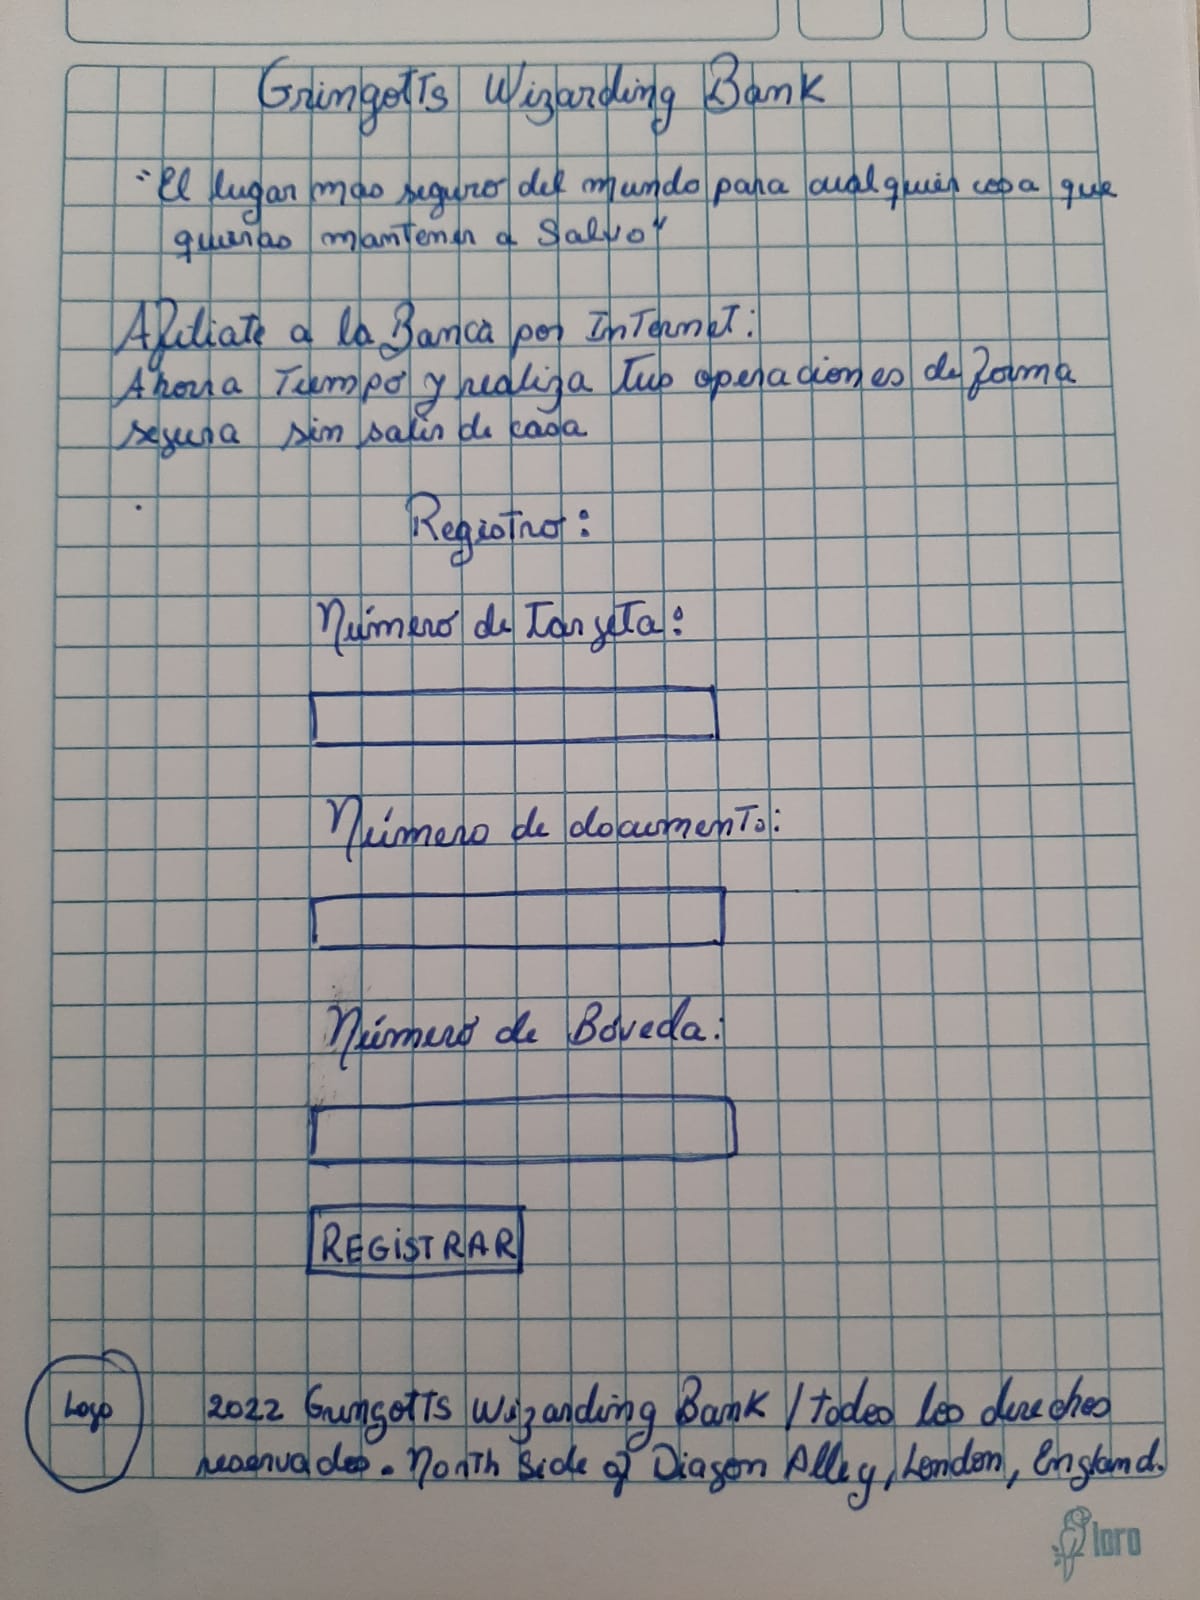 Gringotts Wizarding Bank
"El lugar mas seguro del mundo para cualquier cosa que
quieras mantener a Salvo"
Afiliate a la Banca por Internet:
Ahorra Tiempo y realiza tus operaciones de forma
segura sin salir de casa
Registro:
Número de Tarjeta:
Número de documento:
Número de Bóveda:
REGISTRAR
Logo
2022 Gringotts Wizarding Bank / todos los derechos
reservados. North Side of Diagon Alley, London, England.
loro